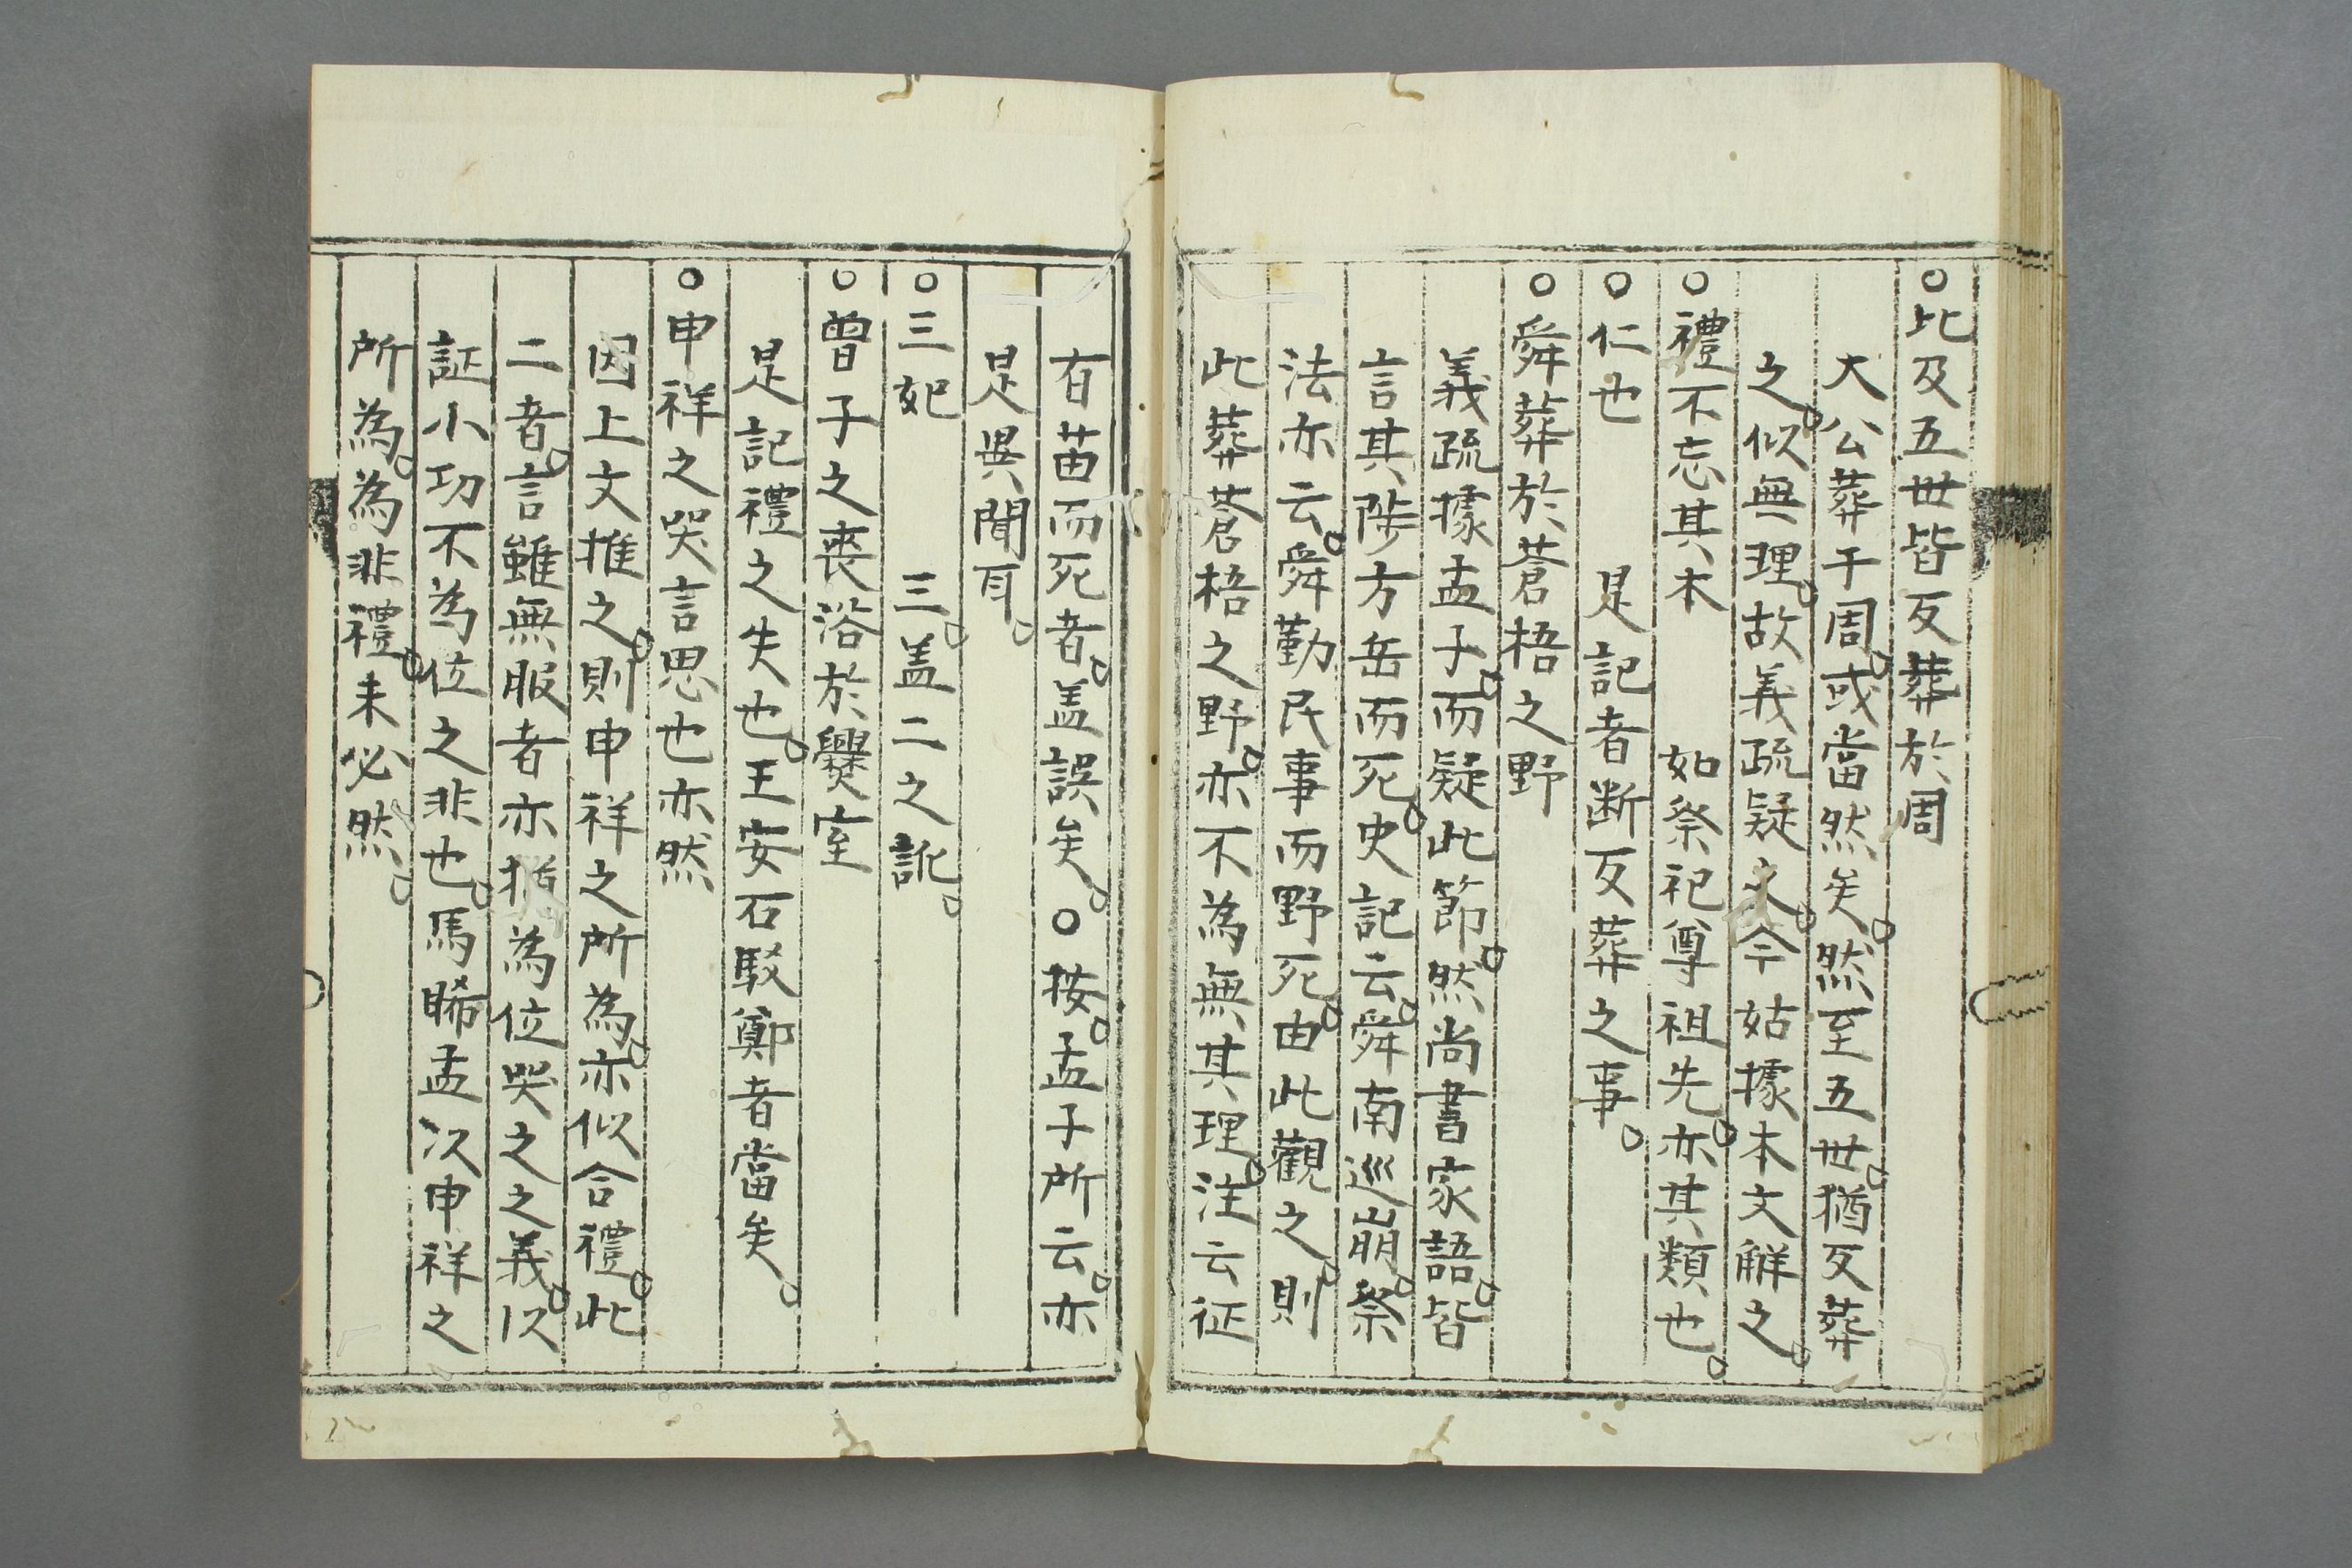 ○比及五世皆反葬於周
大公葬于周。或當然矣。然至五世。猶反葬
之。似無理。故義疏疑之。今姑據本文解之。
○禮不忘其本 如祭祀尊祖先。亦其類也。
○仁也 是記者断反葬之事。
○舜葬於蒼梧之野
義疏據孟子。而疑此節。然尚書家語。皆
言其陟方岳而死。史記云。舜南巡崩。祭
法亦云。舜勤民事而野死。由此觀之。則
此葬蒼梧之野。亦不為無其理。注云征
有苗而死者。盖誤矣。○按。孟子所云。亦
是異聞耳。
○三妃 三。盖二之訛。
○曾子之喪浴於爨室
是記禮之失也。王安石駁鄭者當矣。
○申祥之哭言思也亦然
因上文推之。則申祥之所為。亦似合禮。此
二者。言雖無服者亦猶為位哭之之義。以
証小功不為位之非也。馬晞孟以申祥之
所為。為非禮。未必然。